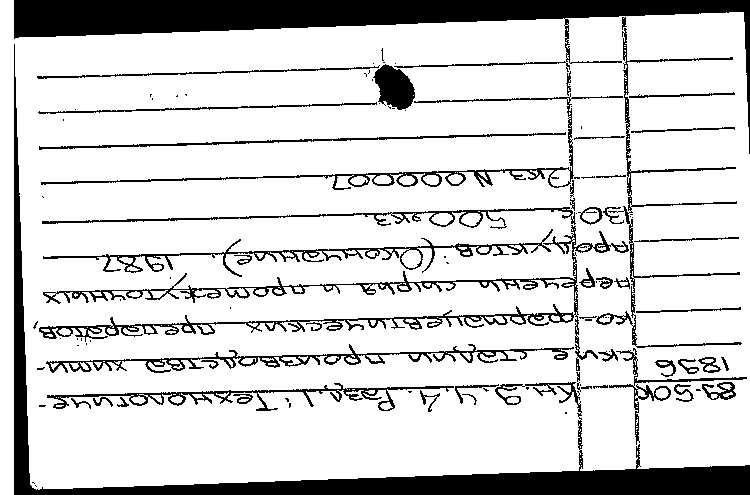 89-50к Кн. 9. Ч. 4. Разд. 1: Технологиче-
1896
ские стадии производства хими-
ко-фармацевтических препаратов,
перечени сырья и промежуточных
продуктов. (Окончание). 1987.
130 с. 500 экз.
Экз. N 000007